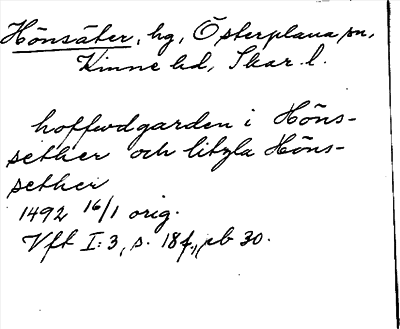 Hönsäter, hg, Österplana sn,
Kinne hd, Skar. l.
hoffwdgarden i Höns-
sether och litzla Höns-
sether
1492 16/1 orig.
Vft I:3, s. 18f., pb 30.